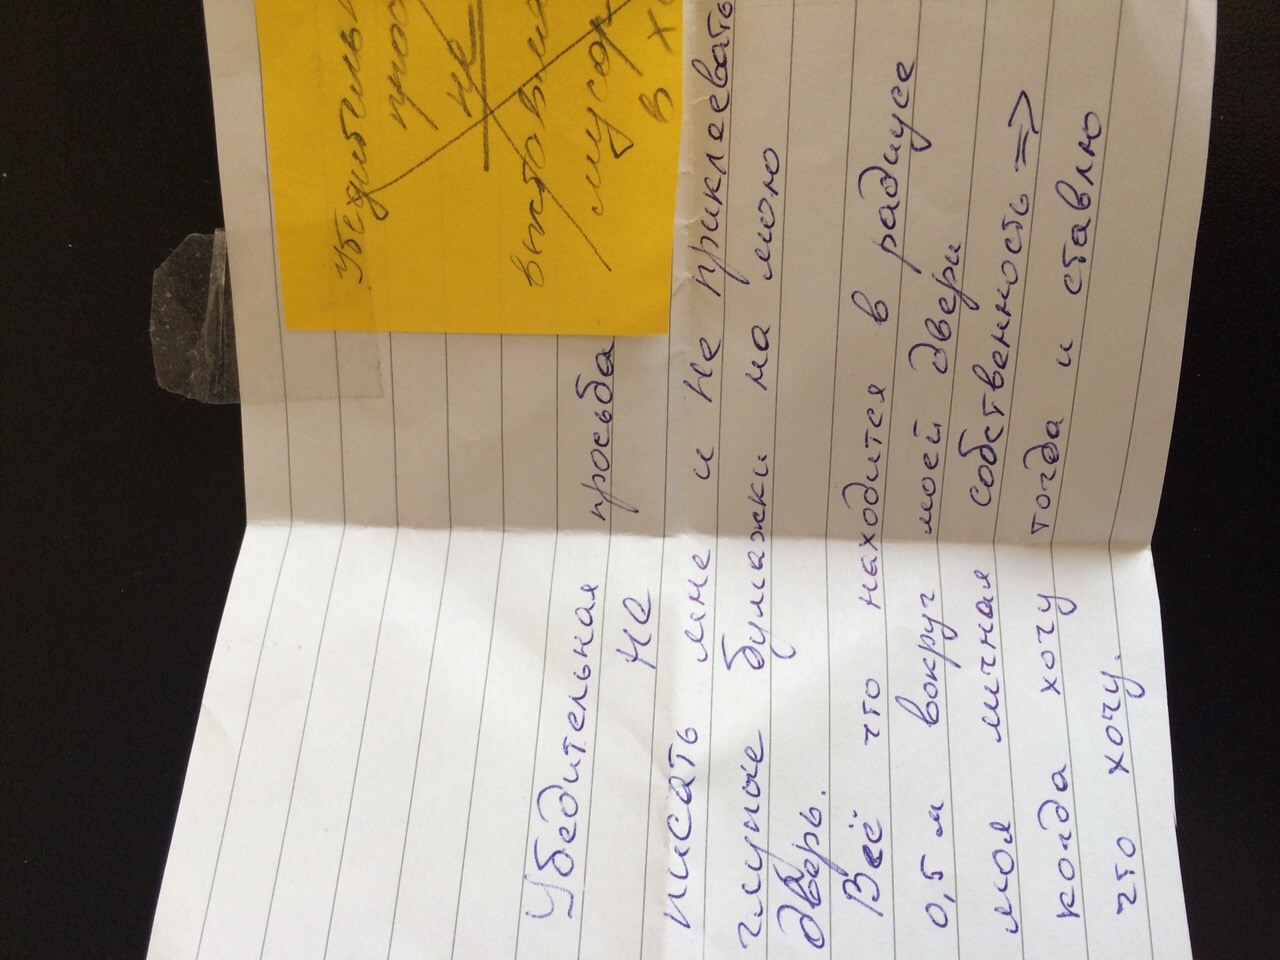 Убедительн
прос
не
выставля
мусор
в х
Убедительная просьба
не
писать мне и не приклеивать
глупые бумажки на мою
дверь.
Всё что находится в радиусе
0,5 м вокруг моей двери
моя личная собственность =>
когда хочу тогда и ставлю
что хочу.